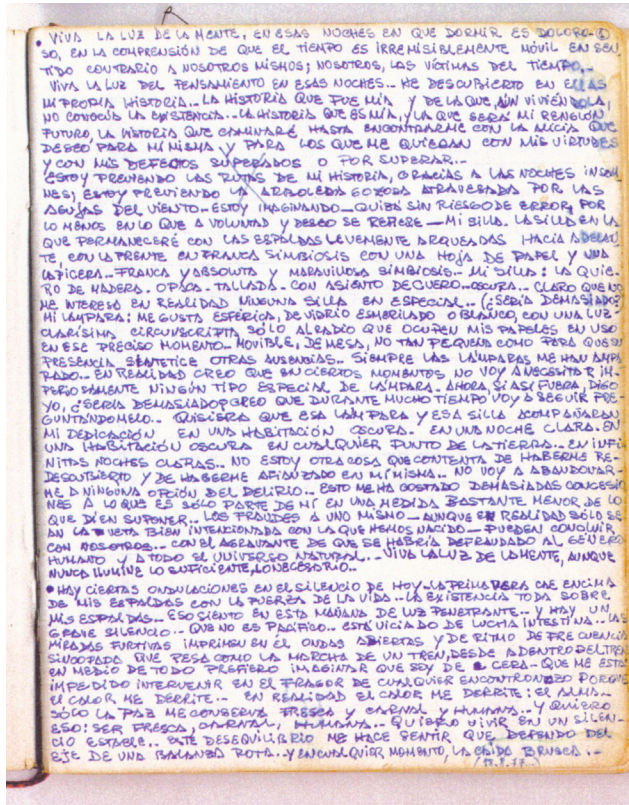 • VIVA LA LUZ DE LA MENTE, EN ESAS NOCHES EN QUE DORMIR ES DOLORO-
SO, EN LA COMPRENSIÓN DE QUE EL TIEMPO ES IRREMISIBLEMENTE MÓVIL EN SEN
TIDO CONTRARIO A NOSOTROS MISMOS; NOSOTROS, LAS VÍCTIMAS DEL TIEMPO...
VIVA LA LUZ DEL PENSAMIENTO EN ESAS NOCHES... HE DESCUBIERTO EN ELLAS
MI PROPIA HISTORIA... LA HISTORIA QUE FUE MÍA Y DE LA QUE, AÚN VIVIÉNDOLA,
NO CONOCÍA LA EXISTENCIA... LA HISTORIA QUE ES MÍA, Y LA QUE SERÁ MI RENGLÓN
FUTURO, LA HISTORIA QUE CAMINARÉ HASTA ENCONTRARME CON LA ALICIA QUE
DESEO PARA MÍ MISMA Y PARA LOS QUE ME QUIERAN CON MIS VIRTUDES
Y CON MIS DEFECTOS SUPERADOS O POR SUPERAR...
ESTOY PREVIENDO LAS RUTAS DE MI HISTORIA, GRACIAS A LAS NOCHES INSOM
NES; ESTOY PREVIENDO LA ARBOLEDA GOZOSA ATRAVESADA POR LAS
AGUJAS DEL VIENTO - ESTOY IMAGINANDO - QUIZÁ SIN RIESGO DE ERROR, POR
LO MENOS EN LO QUE A VOLUNTAD Y DESEO SE REFIERE - MI SILLA. LA SILLA EN LA
QUE PERMANECERÉ CON LAS ESPALDAS LEVEMENTE ARQUEADAS HACIA ADELAN
TE, CON LA FRENTE EN FRANCA SIMBIOSIS CON UNA HOJA DE PAPEL Y UNA
LAPICERA - FRANCA Y ABSOLUTA Y MARAVILLOSA SIMBIOSIS... MI SILLA: LA QUIE-
RO DE MADERA. OPACA. TALLADA. CON ASIENTO DE CUERO... OSCURA... CLARO QUE NO
ME INTERESA EN REALIDAD NINGUNA SILLA EN ESPECIAL... (¿SERÍA DEMASIADO?)
MI LÁMPARA: ME GUSTA ESFÉRICA, DE VIDRIO ESMERILADO O BLANCO, CON UNA LUZ
CLARÍSIMA CIRCUNSCRIPTA SÓLO AL RADIO QUE OCUPEN MIS PAPELES EN USO
EN ESE PRECISO MOMENTO... MOVIBLE, DE MESA, NO TAN PEQUEÑA COMO PARA QUE SU
PRESENCIA SINTETICE OTRAS AUSENCIAS... SIEMPRE LAS LÁMPARAS ME HAN AMPA
RADO... EN REALIDAD CREO QUE EN CIERTOS MOMENTOS NO VOY A NECESITAR IM-
PERIOSAMENTE NINGÚN TIPO ESPECIAL DE LÁMPARA. AHORA, SI ASÍ FUERA, DIGO
YO, ¿SERÍA DEMASIADO? CREO QUE DURANTE MUCHO TIEMPO VOY A SEGUIR PRE-
GUNTÁNDOMELO... QUISIERA QUE ESA LÁMPARA Y ESA SILLA ACOMPAÑARAN
MI DEDICACIÓN EN UNA HABITACIÓN OSCURA. EN UNA NOCHE CLARA. EN
UNA HABITACIÓN OSCURA EN CUALQUIER PUNTO DE LA TIERRA... EN INFI
NITAS NOCHES CLARAS... NO ESTOY OTRA COSA QUE CONTENTA DE HABERME RE-
DESCUBIERTO Y DE HABERME AFIANZADO EN MÍ MISMA... NO VOY A ABANDONAR-
ME A NINGUNA OPCIÓN DEL DELIRIO... ESTO ME HA COSTADO DEMASIADAS CONCESIO
NES A LO QUE ES SÓLO PARTE DE MÍ EN UNA MEDIDA BASTANTE MENOR DE LO
QUE DIEN SUPONER... LOS FRAUDES A UNO MISMO - AUNQUE EN REALIDAD SÓLO SE
AN LA VETA BIEN INTENCIONADA CON LA QUE HEMOS NACIDO - PUEDEN CONCLUIR
CON NOSOTROS... CON EL AGRAVANTE DE QUE SE HABRÍA DEFRAUDADO AL GÉNERO
HUMANO Y A TODO EL UNIVERSO NATURAL... VIVA LA LUZ DE LA MENTE, AUNQUE
NUNCA ILUMINE LO SUFICIENTE, LO NECESARIO...
• HAY CIERTAS ONDULACIONES EN EL SILENCIO DE HOY - LA PRIMAVERA CAE ENCIMA
DE MIS ESPALDAS CON LA FUERZA DE LA VIDA... LA EXISTENCIA TODA SOBRE
MIS ESPALDAS... ESO SIENTO EN ESTA MAÑANA DE LUZ PENETRANTE... Y HAY UN
GRAVE SILENCIO... QUE NO ES PACÍFICO... ESTÁ VICIADO DE LUCHA INTESTINA... LAS
MIRADAS FURTIVAS IMPRIMEN EN ÉL ONDAS ABIERTAS Y DE RITMO DE FRECUENCIA
SINCOPADA QUE PESA COMO LA MARCHA DE UN TREN, DESDE ADENTRO DEL TREN
EN MEDIO DE TODO PREFIERO IMAGINAR QUE SOY DE CERA - QUE ME ESTÁ
IMPEDIDO INTERVENIR EN EL FRAGOR DE CUALQUIER ENCONTRONAZO PORQUE
EL CALOR ME DERRITE... EN REALIDAD EL CALOR ME DERRITE: EL ALMA...
SÓLO LA PAZ ME CONSERVA FRESCA Y CARNAL Y HUMANA... Y QUIERO
ESO: SER FRESCA, CARNAL, HUMANA... QUIERO VIVIR EN UN SILEN-
CIO ESTABLE... ESTE DESEQUILIBRIO ME HACE SENTIR QUE DEPENDO DEL
EJE DE UNA BALANZA ROTA... Y EN CUALQUIER MOMENTO, LA CAÍDA BRUSCA...